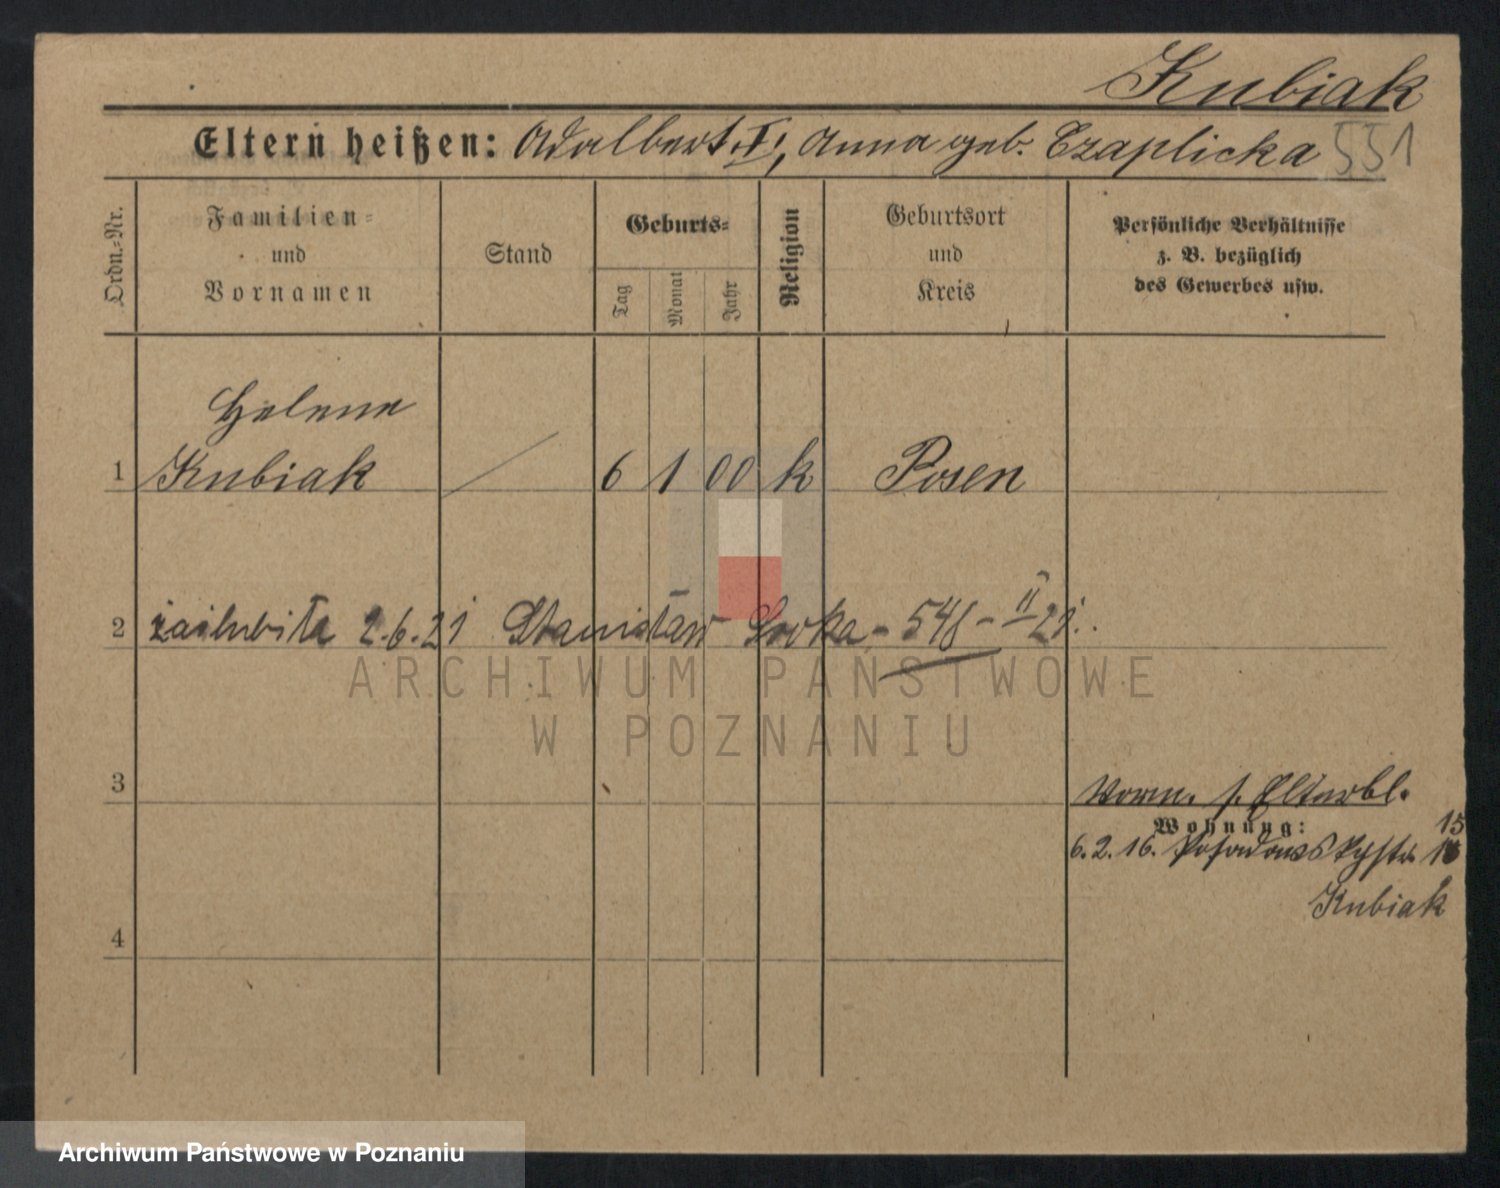 Kubiak
Eltern heißen: Adalbert I, Anna geb. Czaplicka 551
Ordn.=Nr.
Familien=
und
Vornamen
Stand
Geburts=
Tag
Monat
Jahr
Religion
Geburtsort
und
Kreis
Persönliche Verhältnisse
z. B. bezüglich
des Gewerbes usw.
Helene
1 Kubiak / 6 1 00 k Posen
2 zaślubiła 2.6.21 Stanisław Sroka - 548 - II 21.
3
Vorm. s. Elternbl.
Wohnung: 15
6. 2. 16. Posadowskystr.
Kubiak
4
ARCHIWUM PAŃSTWOWE
W POZNANIU
Archiwum Państwowe w Poznaniu